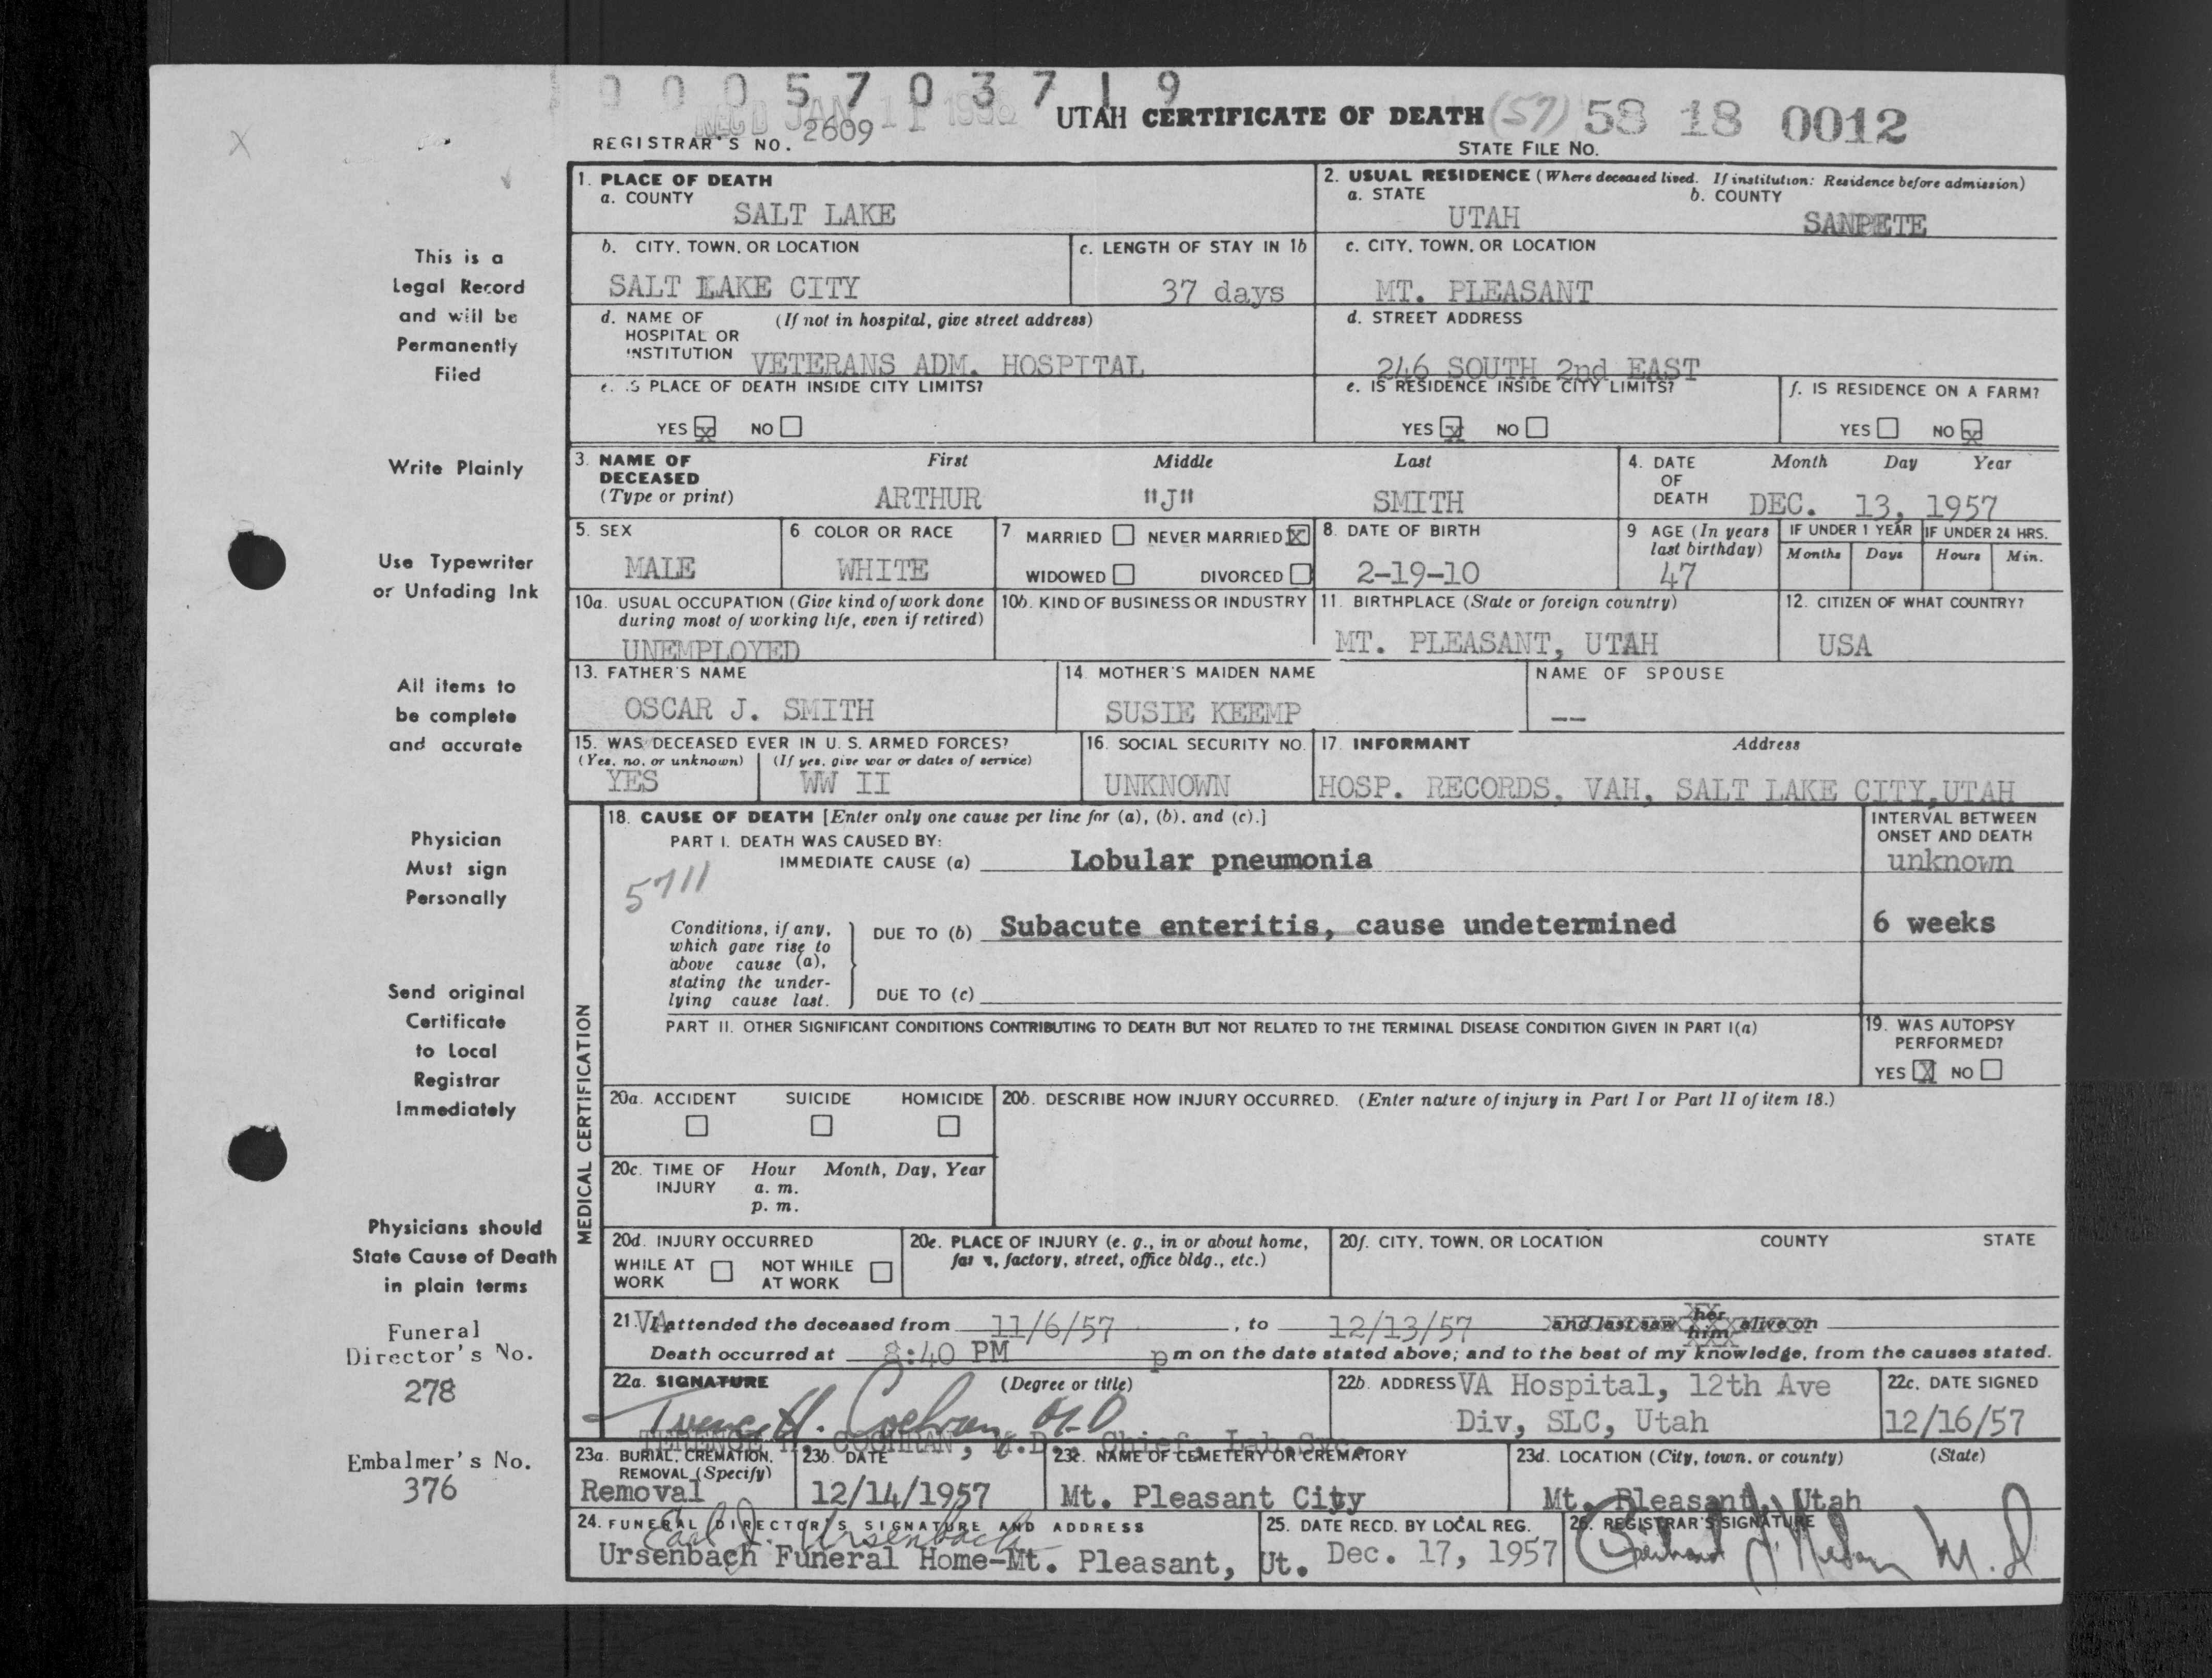 0 0 0 5 7 0 3 7 1 9
REC'D JAN 11 1958
UTAH CERTIFICATE OF DEATH (57) 58 18 0012
REGISTRAR'S NO. 2609
STATE FILE NO.
1. PLACE OF DEATH
a. COUNTY
SALT LAKE
2. USUAL RESIDENCE (Where deceased lived. If institution: Residence before admission)
a. STATE b. COUNTY
UTAH SANPETE
b. CITY, TOWN, OR LOCATION
SALT LAKE CITY
c. LENGTH OF STAY IN 1b
37 days
c. CITY, TOWN, OR LOCATION
MT. PLEASANT
d. NAME OF (If not in hospital, give street address)
HOSPITAL OR
INSTITUTION VETERANS ADM. HOSPITAL
d. STREET ADDRESS
246 SOUTH 2nd EAST
e. IS PLACE OF DEATH INSIDE CITY LIMITS?
YES X NO
e. IS RESIDENCE INSIDE CITY LIMITS?
YES X NO
f. IS RESIDENCE ON A FARM?
YES NO X
3. NAME OF DECEASED First Middle Last
(Type or print) ARTHUR "J" SMITH
4. DATE OF DEATH Month Day Year
DEC. 13, 1957
5. SEX
MALE
6 COLOR OR RACE
WHITE
7 MARRIED NEVER MARRIED X
WIDOWED DIVORCED
8. DATE OF BIRTH
2-19-10
9 AGE (In years last birthday)
47
IF UNDER 1 YEAR
Months Days
IF UNDER 24 HRS.
Hours Min.
10a. USUAL OCCUPATION (Give kind of work done
during most of working life, even if retired)
UNEMPLOYED
10b. KIND OF BUSINESS OR INDUSTRY
11. BIRTHPLACE (State or foreign country)
MT. PLEASANT, UTAH
12. CITIZEN OF WHAT COUNTRY?
USA
13. FATHER'S NAME
OSCAR J. SMITH
14. MOTHER'S MAIDEN NAME
SUSIE KEEMP
NAME OF SPOUSE
--
15. WAS DECEASED EVER IN U. S. ARMED FORCES?
(Yes, no, or unknown) (If yes, give war or dates of service)
YES WW II
16. SOCIAL SECURITY NO.
UNKNOWN
17. INFORMANT Address
HOSP. RECORDS, VAH, SALT LAKE CITY, UTAH
MEDICAL CERTIFICATION
18. CAUSE OF DEATH [Enter only one cause per line for (a), (b), and (c).]
PART I. DEATH WAS CAUSED BY:
IMMEDIATE CAUSE (a) Lobular pneumonia
INTERVAL BETWEEN
ONSET AND DEATH
unknown
5711
Conditions, if any,
which gave rise to
above cause (a),
stating the under-
lying cause last.
DUE TO (b) Subacute enteritis, cause undetermined
6 weeks
DUE TO (c)
PART II. OTHER SIGNIFICANT CONDITIONS CONTRIBUTING TO DEATH BUT NOT RELATED TO THE TERMINAL DISEASE CONDITION GIVEN IN PART I(a)
19. WAS AUTOPSY
PERFORMED?
YES X NO
20a. ACCIDENT SUICIDE HOMICIDE
20b. DESCRIBE HOW INJURY OCCURRED. (Enter nature of injury in Part I or Part II of item 18.)
20c. TIME OF INJURY Hour Month, Day, Year
a. m.
p. m.
20d. INJURY OCCURRED
WHILE AT WORK NOT WHILE AT WORK
20e. PLACE OF INJURY (e. g., in or about home,
farm, factory, street, office bldg., etc.)
20f. CITY, TOWN, OR LOCATION COUNTY STATE
21. VA attended the deceased from 11/6/57, to 12/13/57 and last saw her him alive on
Death occurred at 8:40 PM p m on the date stated above; and to the best of my knowledge, from the causes stated.
22a. SIGNATURE (Degree or title)
Terence H. Cochran MD
TERENCE H. COCHRAN, M.D., Chief, Lab. Svc.
22b. ADDRESS VA Hospital, 12th Ave
Div, SLC, Utah
22c. DATE SIGNED
12/16/57
23a. BURIAL, CREMATION,
REMOVAL (Specify)
Removal
23b. DATE
12/14/1957
23c. NAME OF CEMETERY OR CREMATORY
Mt. Pleasant City
23d. LOCATION (City, town, or county) (State)
Mt. Pleasant, Utah
24. FUNERAL DIRECTOR'S SIGNATURE AND ADDRESS
Earl J. Ursenbach
Ursenbach Funeral Home-Mt. Pleasant, Ut.
25. DATE RECD. BY LOCAL REG.
Dec. 17, 1957
26. REGISTRAR'S SIGNATURE
M.D
This is a
Legal Record
and will be
Permanently
Filed
Write Plainly
Use Typewriter
or Unfading Ink
All items to
be complete
and accurate
Physician
Must sign
Personally
Send original
Certificate
to Local
Registrar
Immediately
Physicians should
State Cause of Death
in plain terms
Funeral
Director's No.
278
Embalmer's No.
376